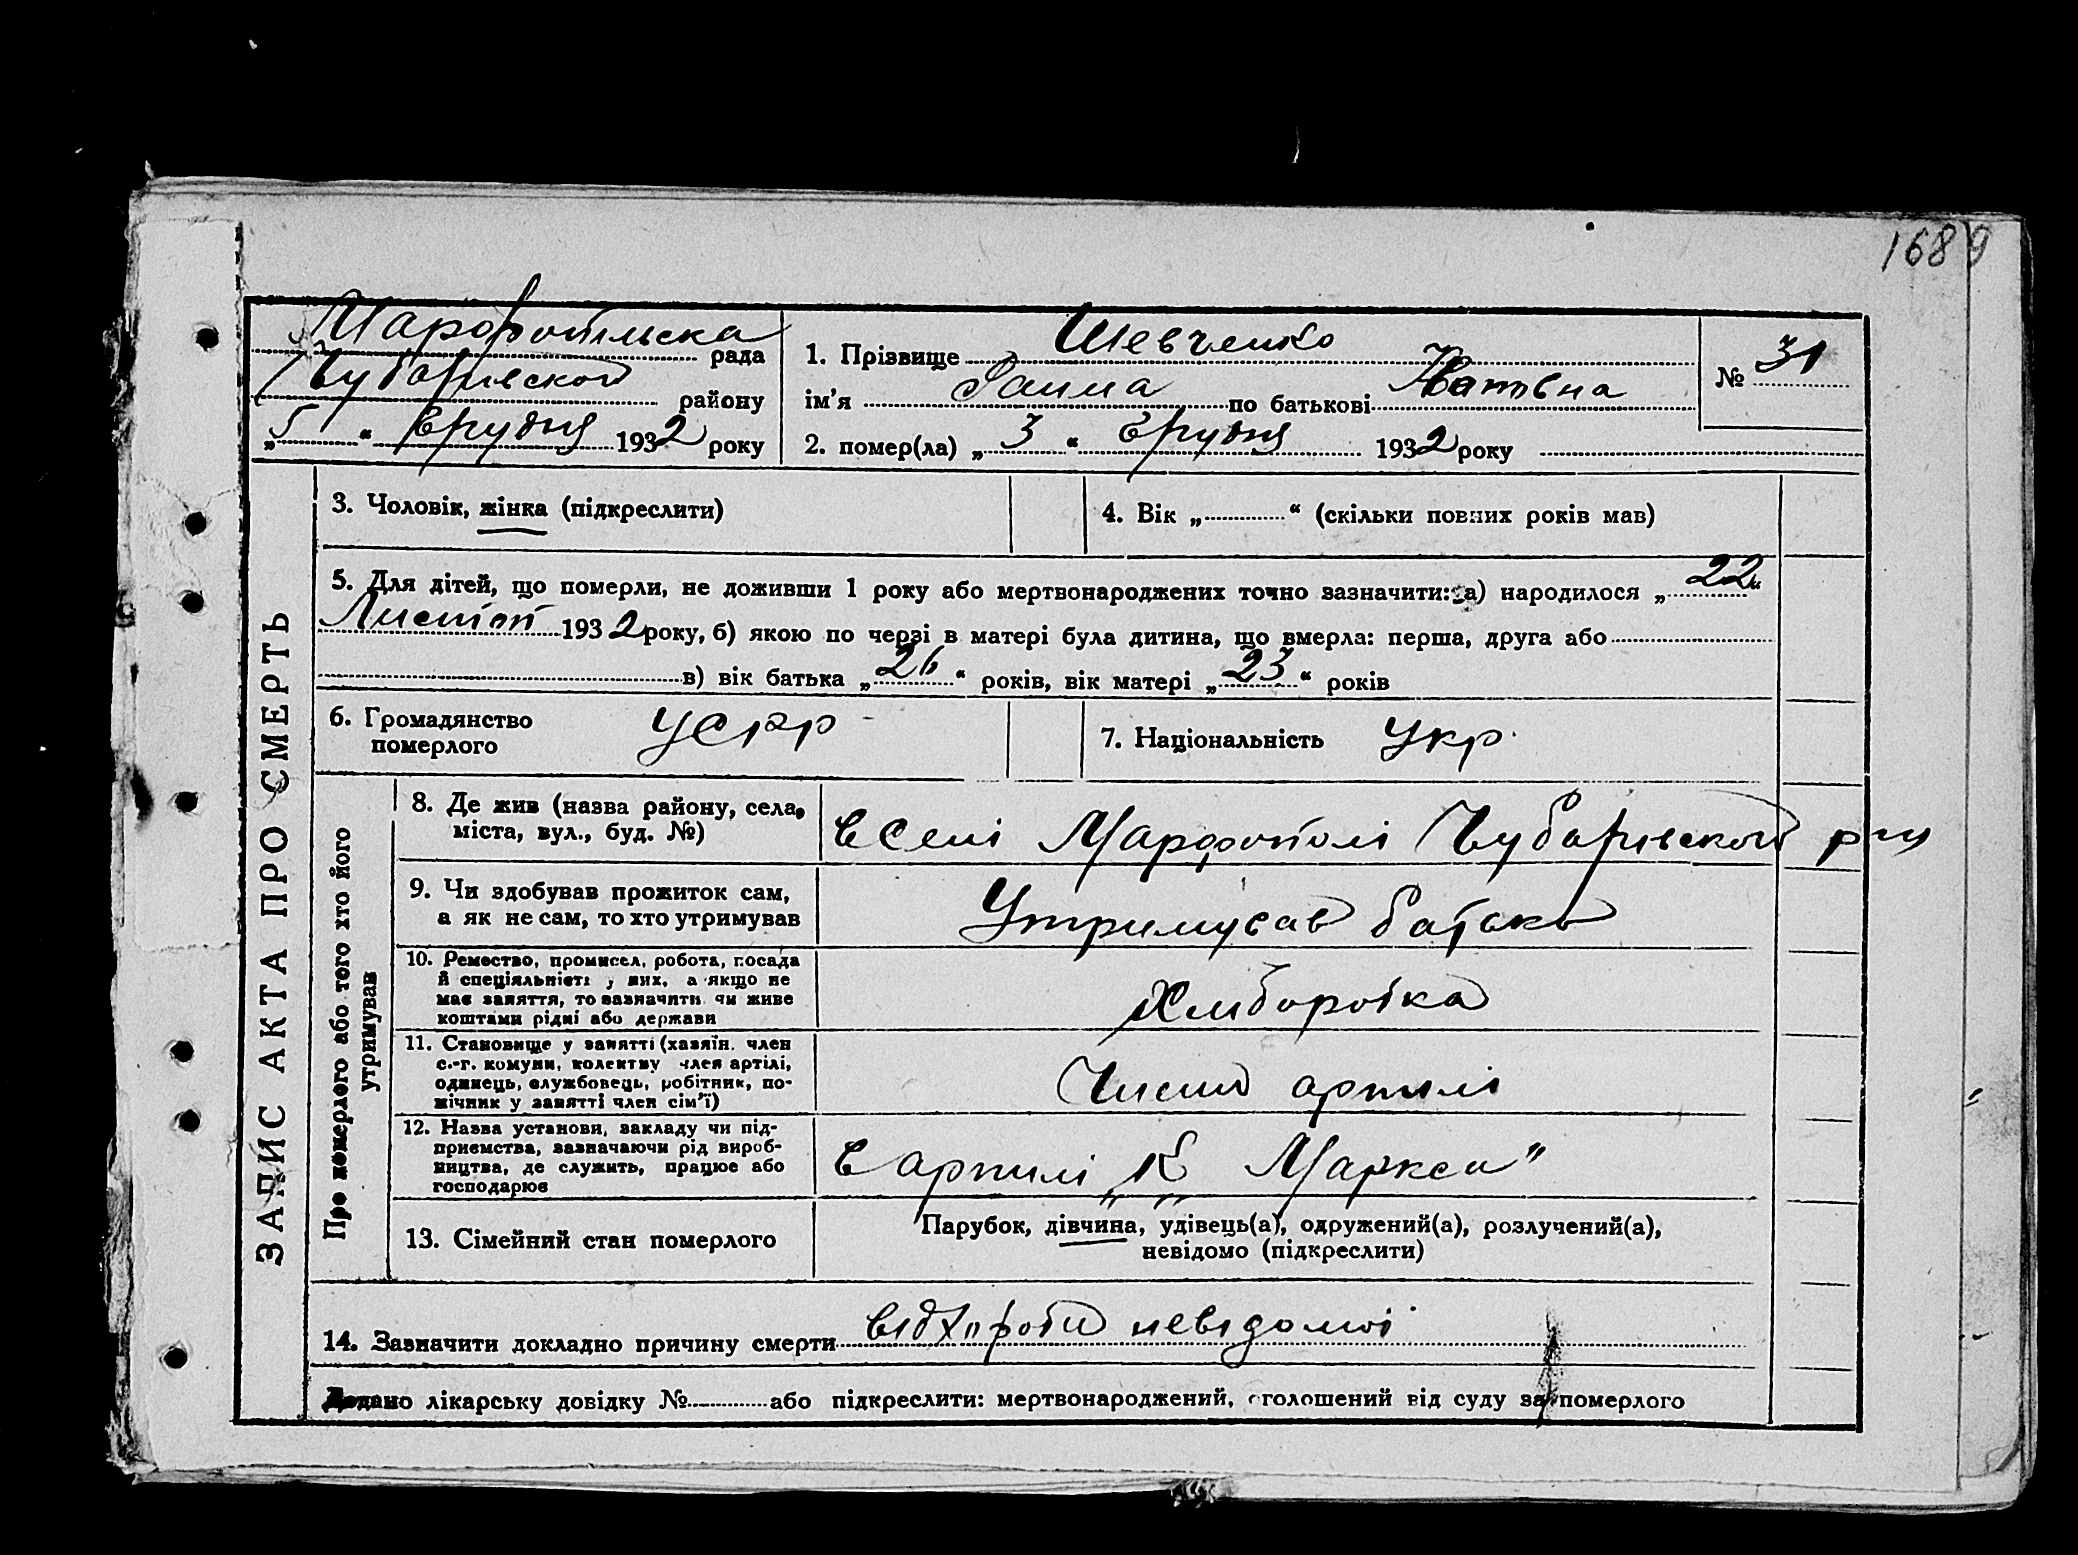 1689
Марфопільска рада
Чубарівской району
„5“ Грудня 1932 року
1. Прізвище Шевченко
ім'я по батькові
№ 31
2. помер(ла) „3“ Грудня 1932 року
ЗАПИС АКТА ПРО СМЕРТЬ
3. Чоловік, жінка (підкреслити)
4. Вік „ “ (скільки повних років мав)
5. Для дітей, що померли, не доживши 1 року або мертвонароджених точно зазначити: а) народилося „22“
Листоп 1932 року, б) якою по черзі в матері була дитина, що вмерла: перша, друга або
в) вік батька „26“ років, вік матері „23“ років
6. Громадянство
померлого
УСРР
7. Національність Укр.
Про померлого або того хто його
утримував
8. Де жив (назва району, села,
міста, вул., буд. №)
в Селі Марфополі Чубарівской р-ну
9. Чи здобував прожиток сам,
а як не сам, то хто утримував
Утримував батько
10. Ремество, промисел, робота, посада
й спеціяльність у них, а якщо не
має заняття, то зазначити чи живе
коштами рідні або держави
11. Становище у занятті (хазяїн, член
с.-г. комуни, колективу член артілі,
одинець, службовець, робітник, по-
мічник у занятті член сім'ї)
Член артилі
12. Назва установи, закладу чи під-
приємства, зазначаючи рід вироб-
ництва, де служить, працює або
господарює
в артилі „К Маркса“
13. Сімейний стан померлого
Парубок, дівчина, удівець(а), одружений(а), розлучений(а),
невідомо (підкреслити)
14. Зазначити докладно причину смерти від хороби невідомої
Додано лікарську довідку № або підкреслити: мертвонароджений, оголошений від суду за померлого